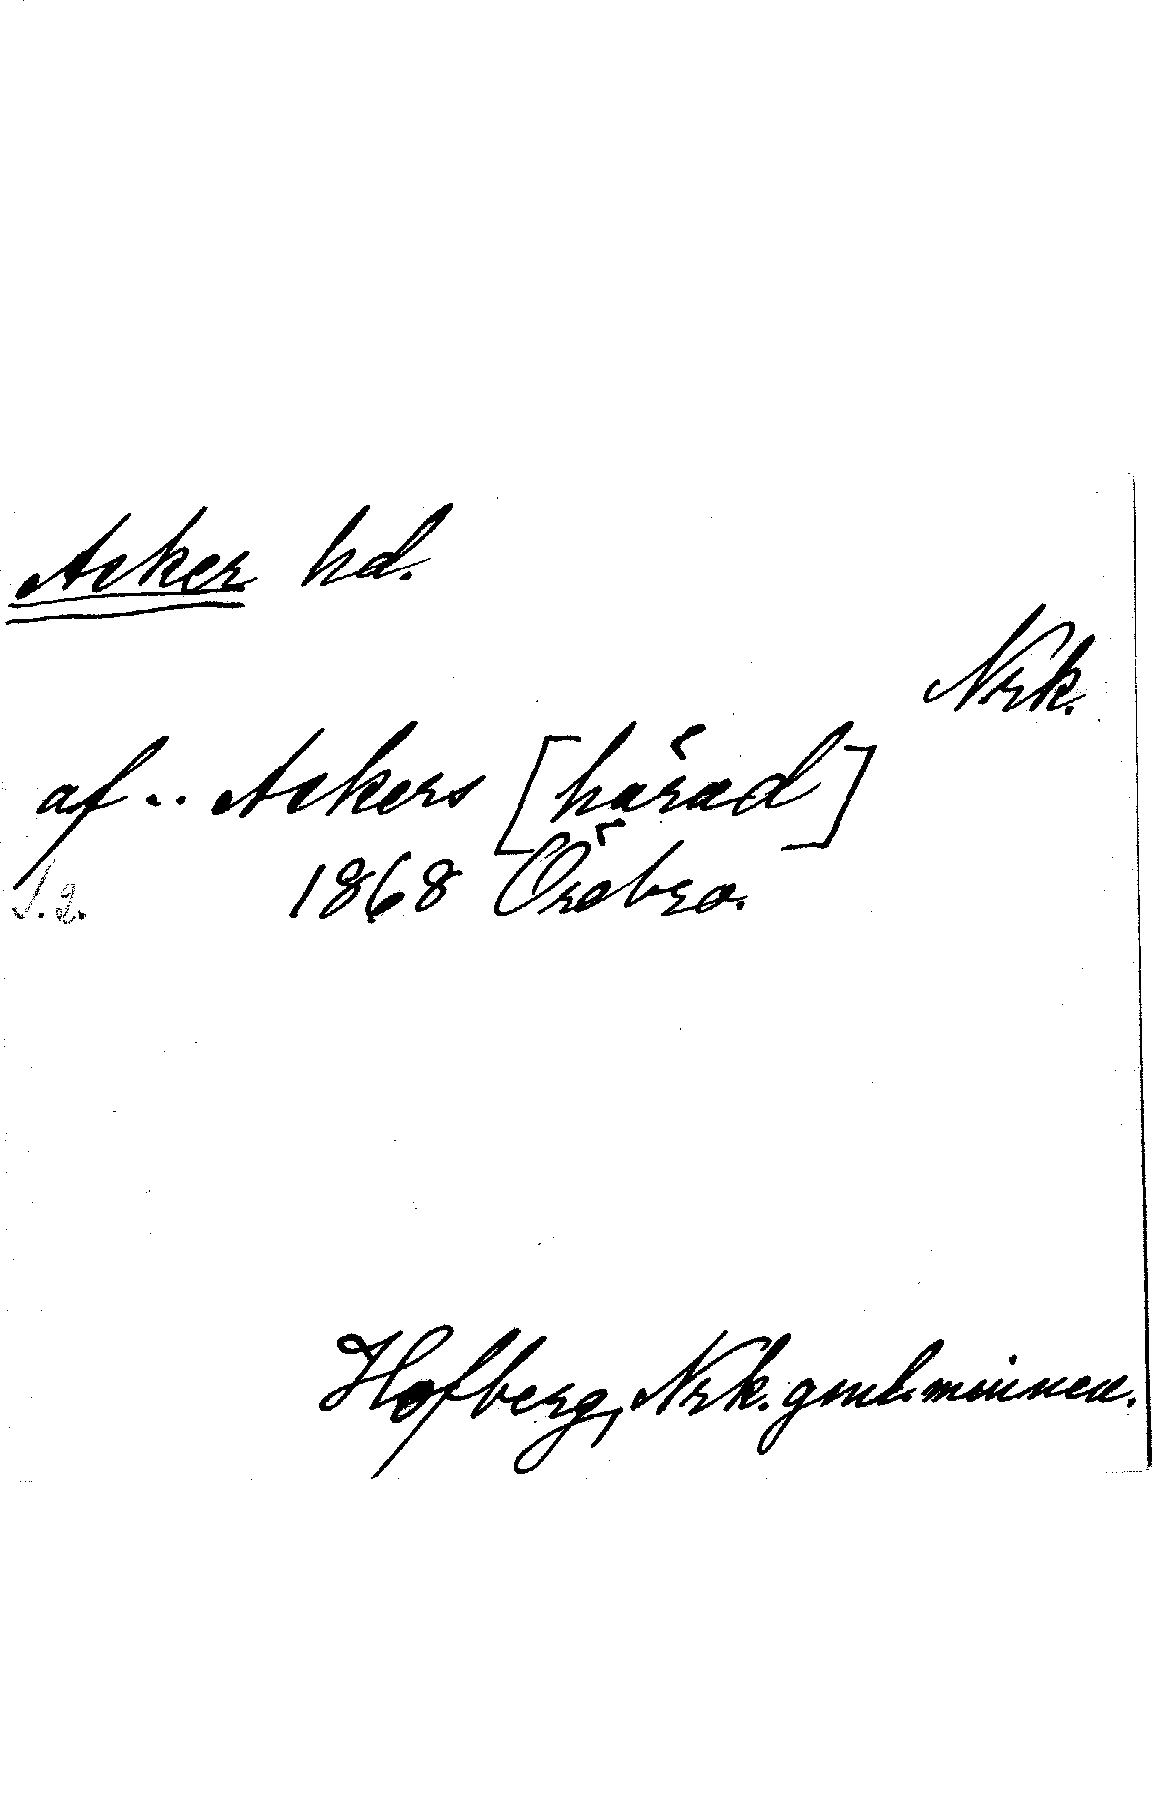 Asker hd.
Nrk.
af .. Askers [härad]
S. 2. 1868 Örebro.
Hofberg, Nrk. gml. minnen.